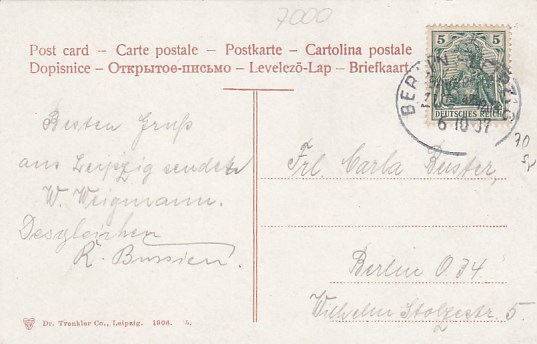 7000
Post card – Carte postale – Postkarte – Cartolina postale
Dopisnice – Открытое-письмо – Levelező-Lap – Briefkaart
5 5
DEUTSCHES REICH
BERLIN
6 10
Besten Gruß
aus Leipzig sendet
W. Weigmann.
Desgleichen
R. Bussien.
70
Frl. Carla Duster,
Berlin O 34.
Wilhelm Stolzestr 5.
Dr. Trenkler Co., Leipzig. 1906.